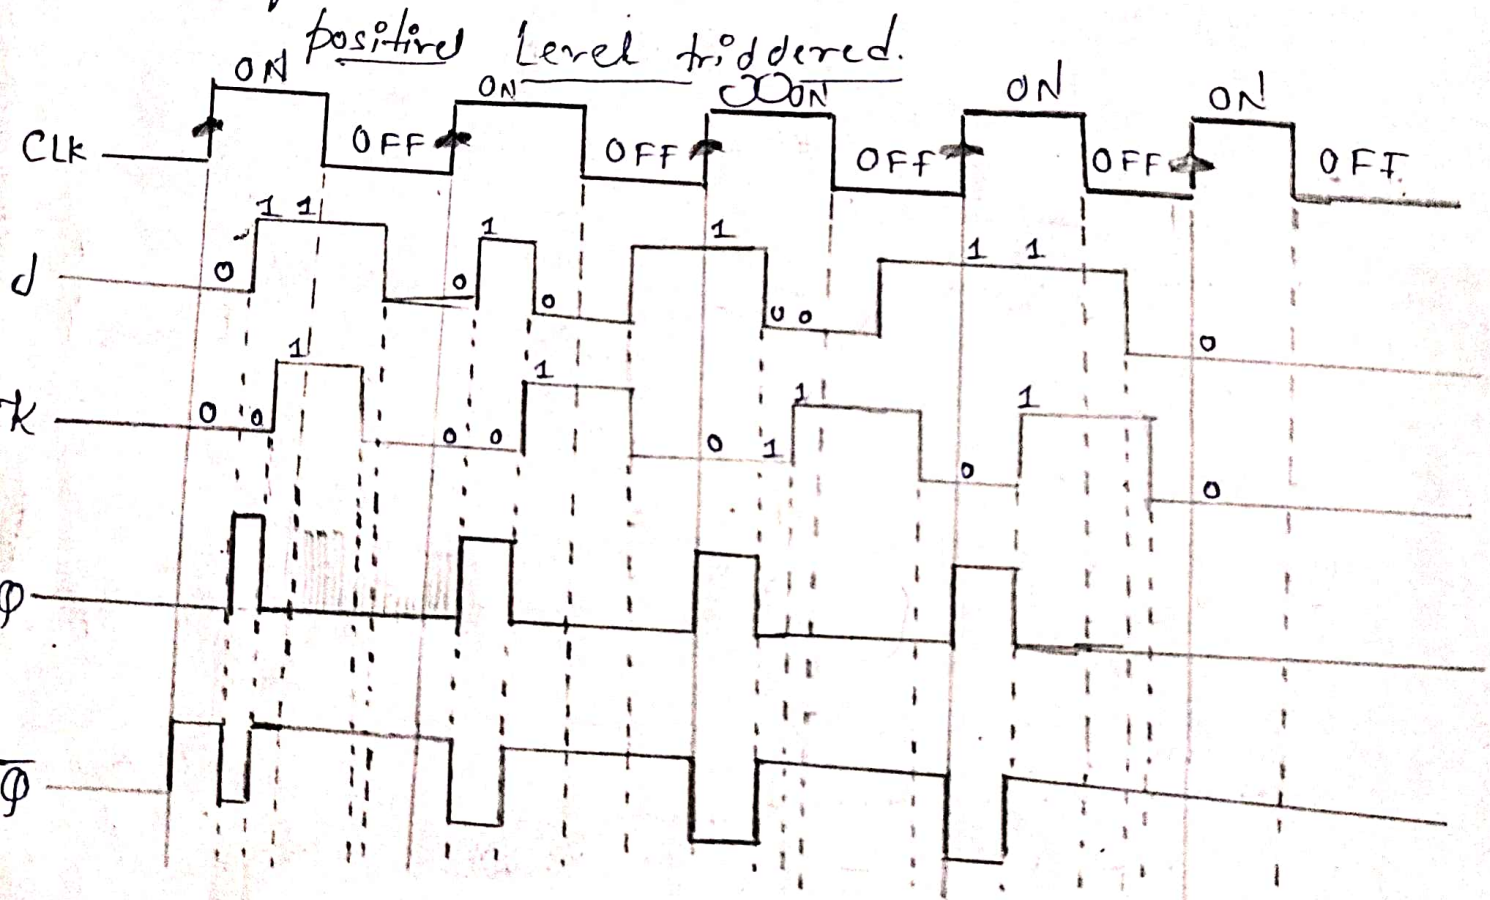 positive Level triddered.
ON ON ON ON ON
CLK OFF OFF OFF OFF OFF
J 0 1 1 0 1 0 1 0 0 1 1 0
K 0 0 1 0 0 1 0 1 1 0 1 0
Q
Q̅